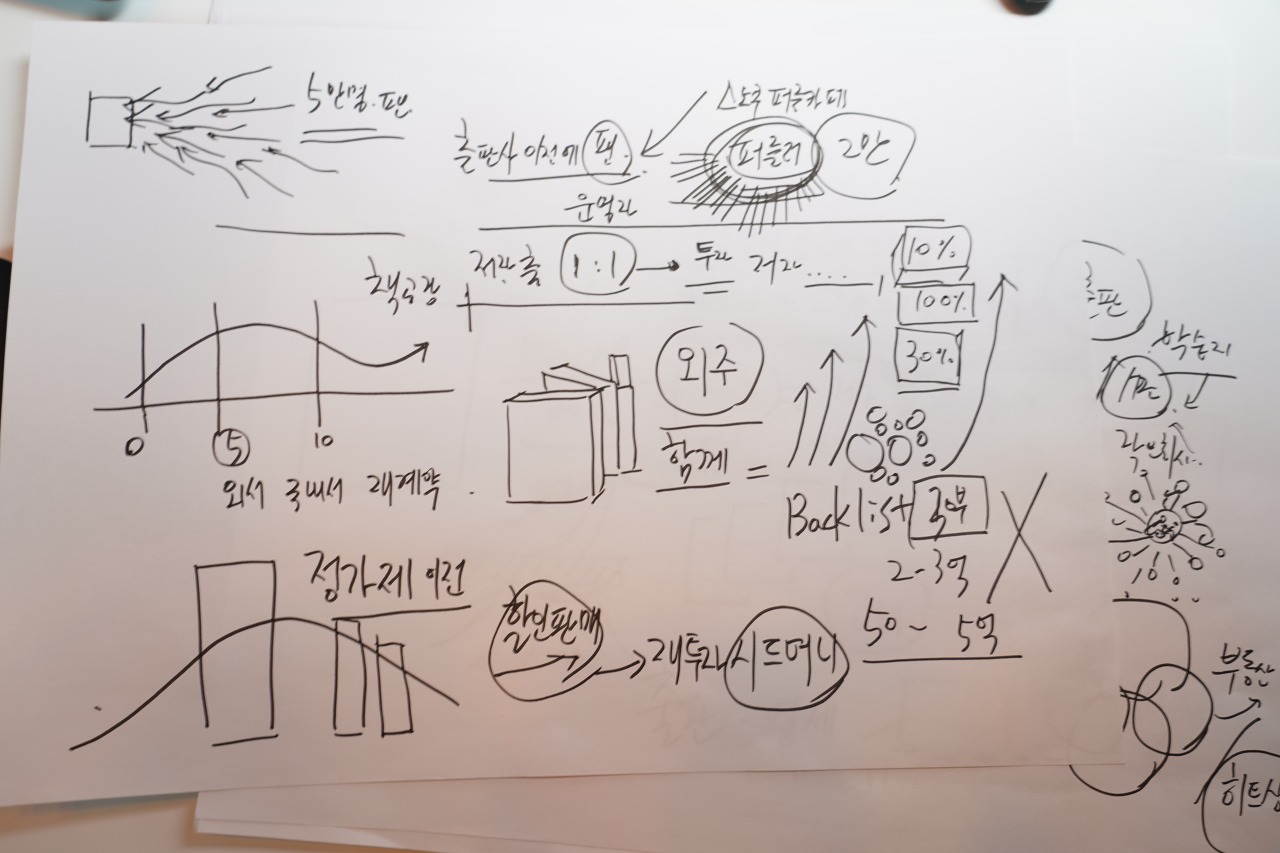 5만명. 팬
스노우 퍼플카페
출판사 이전에 팬.
퍼플러
2만
운명과
책공장
저관출 1:1 투자 저자.....
10%
100%
30%
외주
함께 =
0 5 10
외서 국내서 재계약
Backlist 3부
2-3억
50 ~ 5억
정가제 이전
할인판매
재투자 시드머니
출판
학습지
부동산
히트상